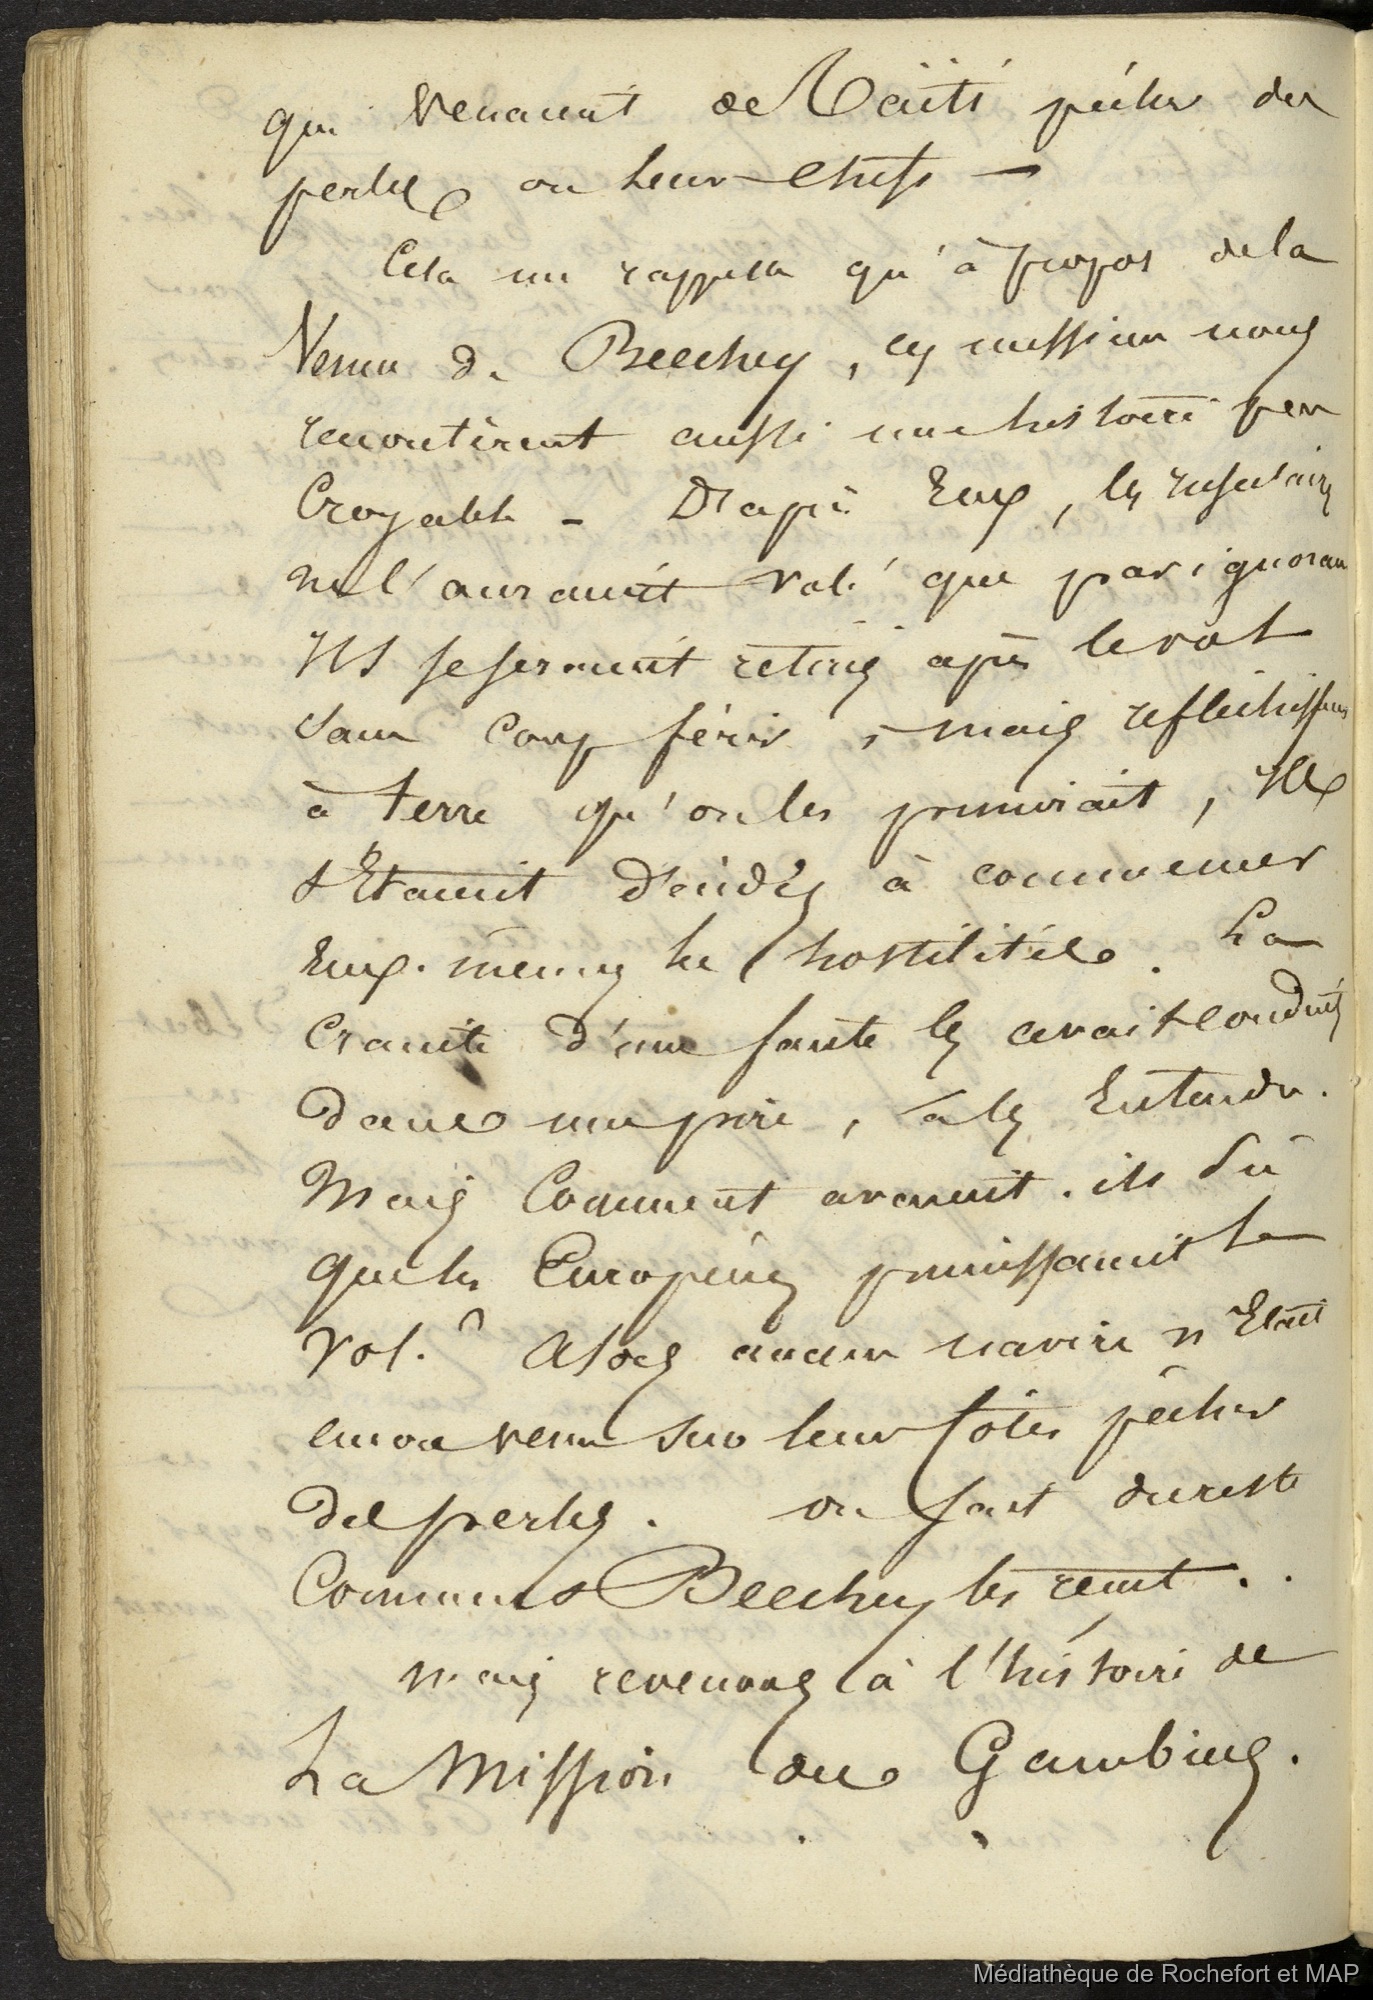 qui venaient de Taïti pêcher des
perles ou leurs chefs —
Cela me rappelle qu'à propos de la
Venue de Beechey, ces messieurs nous
racontèrent aussi une histoire peu
Croyable - D'après Eux, les insulaires
ne l'auraient volé que par ignorance
Ils se seraient retirés après le vol
sans coup férir, mais réfléchissant
à terre qu'on les punirait, Ils
s'Etaient décidés à commencer
Eux-mêmes les hostilités. La
Crainte d'une faute les avait conduits
dans une pire, à les Entendre.
Mais Comment avaient-ils su
que les Européens punissaient le
Vol? Alors aucun navire n'Etait
encore venu sur leurs côtes pêcher
des perles. on sait du reste
Comment Beechey les reçut..
Mais revenons à l'histoire de
La Mission des Gambiers.
Médiathèque de Rochefort et MAP